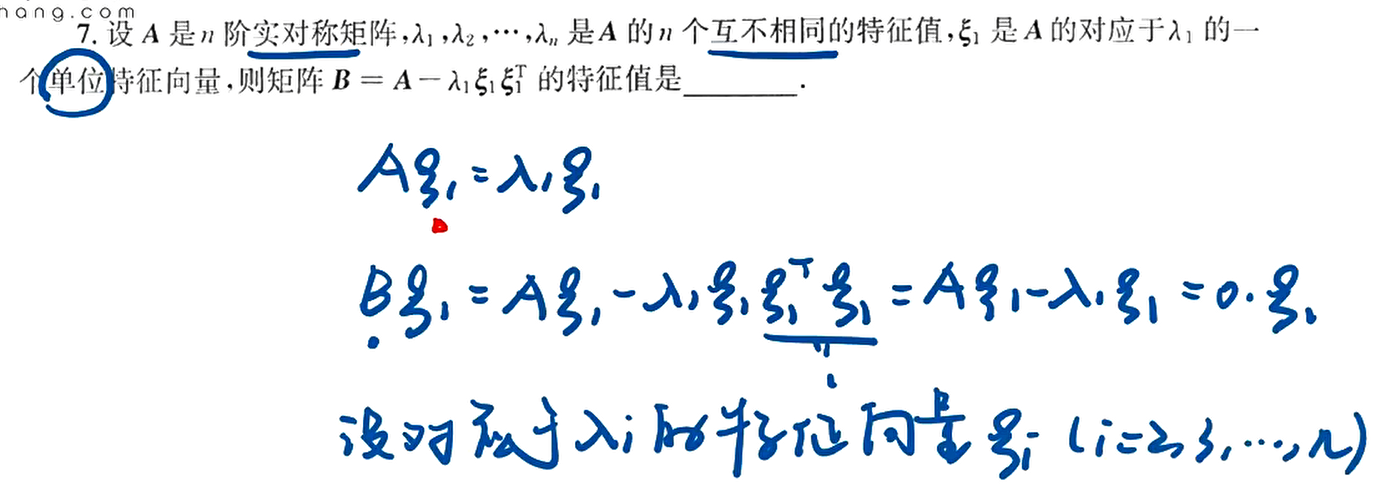 hang.com
7. 设 A 是 n 阶实对称矩阵,λ₁,λ₂,⋯,λₙ 是 A 的 n 个互不相同的特征值,ξ₁ 是 A 的对应于 λ₁ 的一
个单位特征向量,则矩阵 B = A − λ₁ξ₁ξ₁ᵀ 的特征值是________.
Aξ₁ = λ₁ξ₁
Bξ₁ = Aξ₁ − λ₁ξ₁ξ₁ᵀξ₁ = Aξ₁ − λ₁ξ₁ = 0·ξ₁
1
设对应于λi的特征向量ξi (i=2,3,⋯,n)